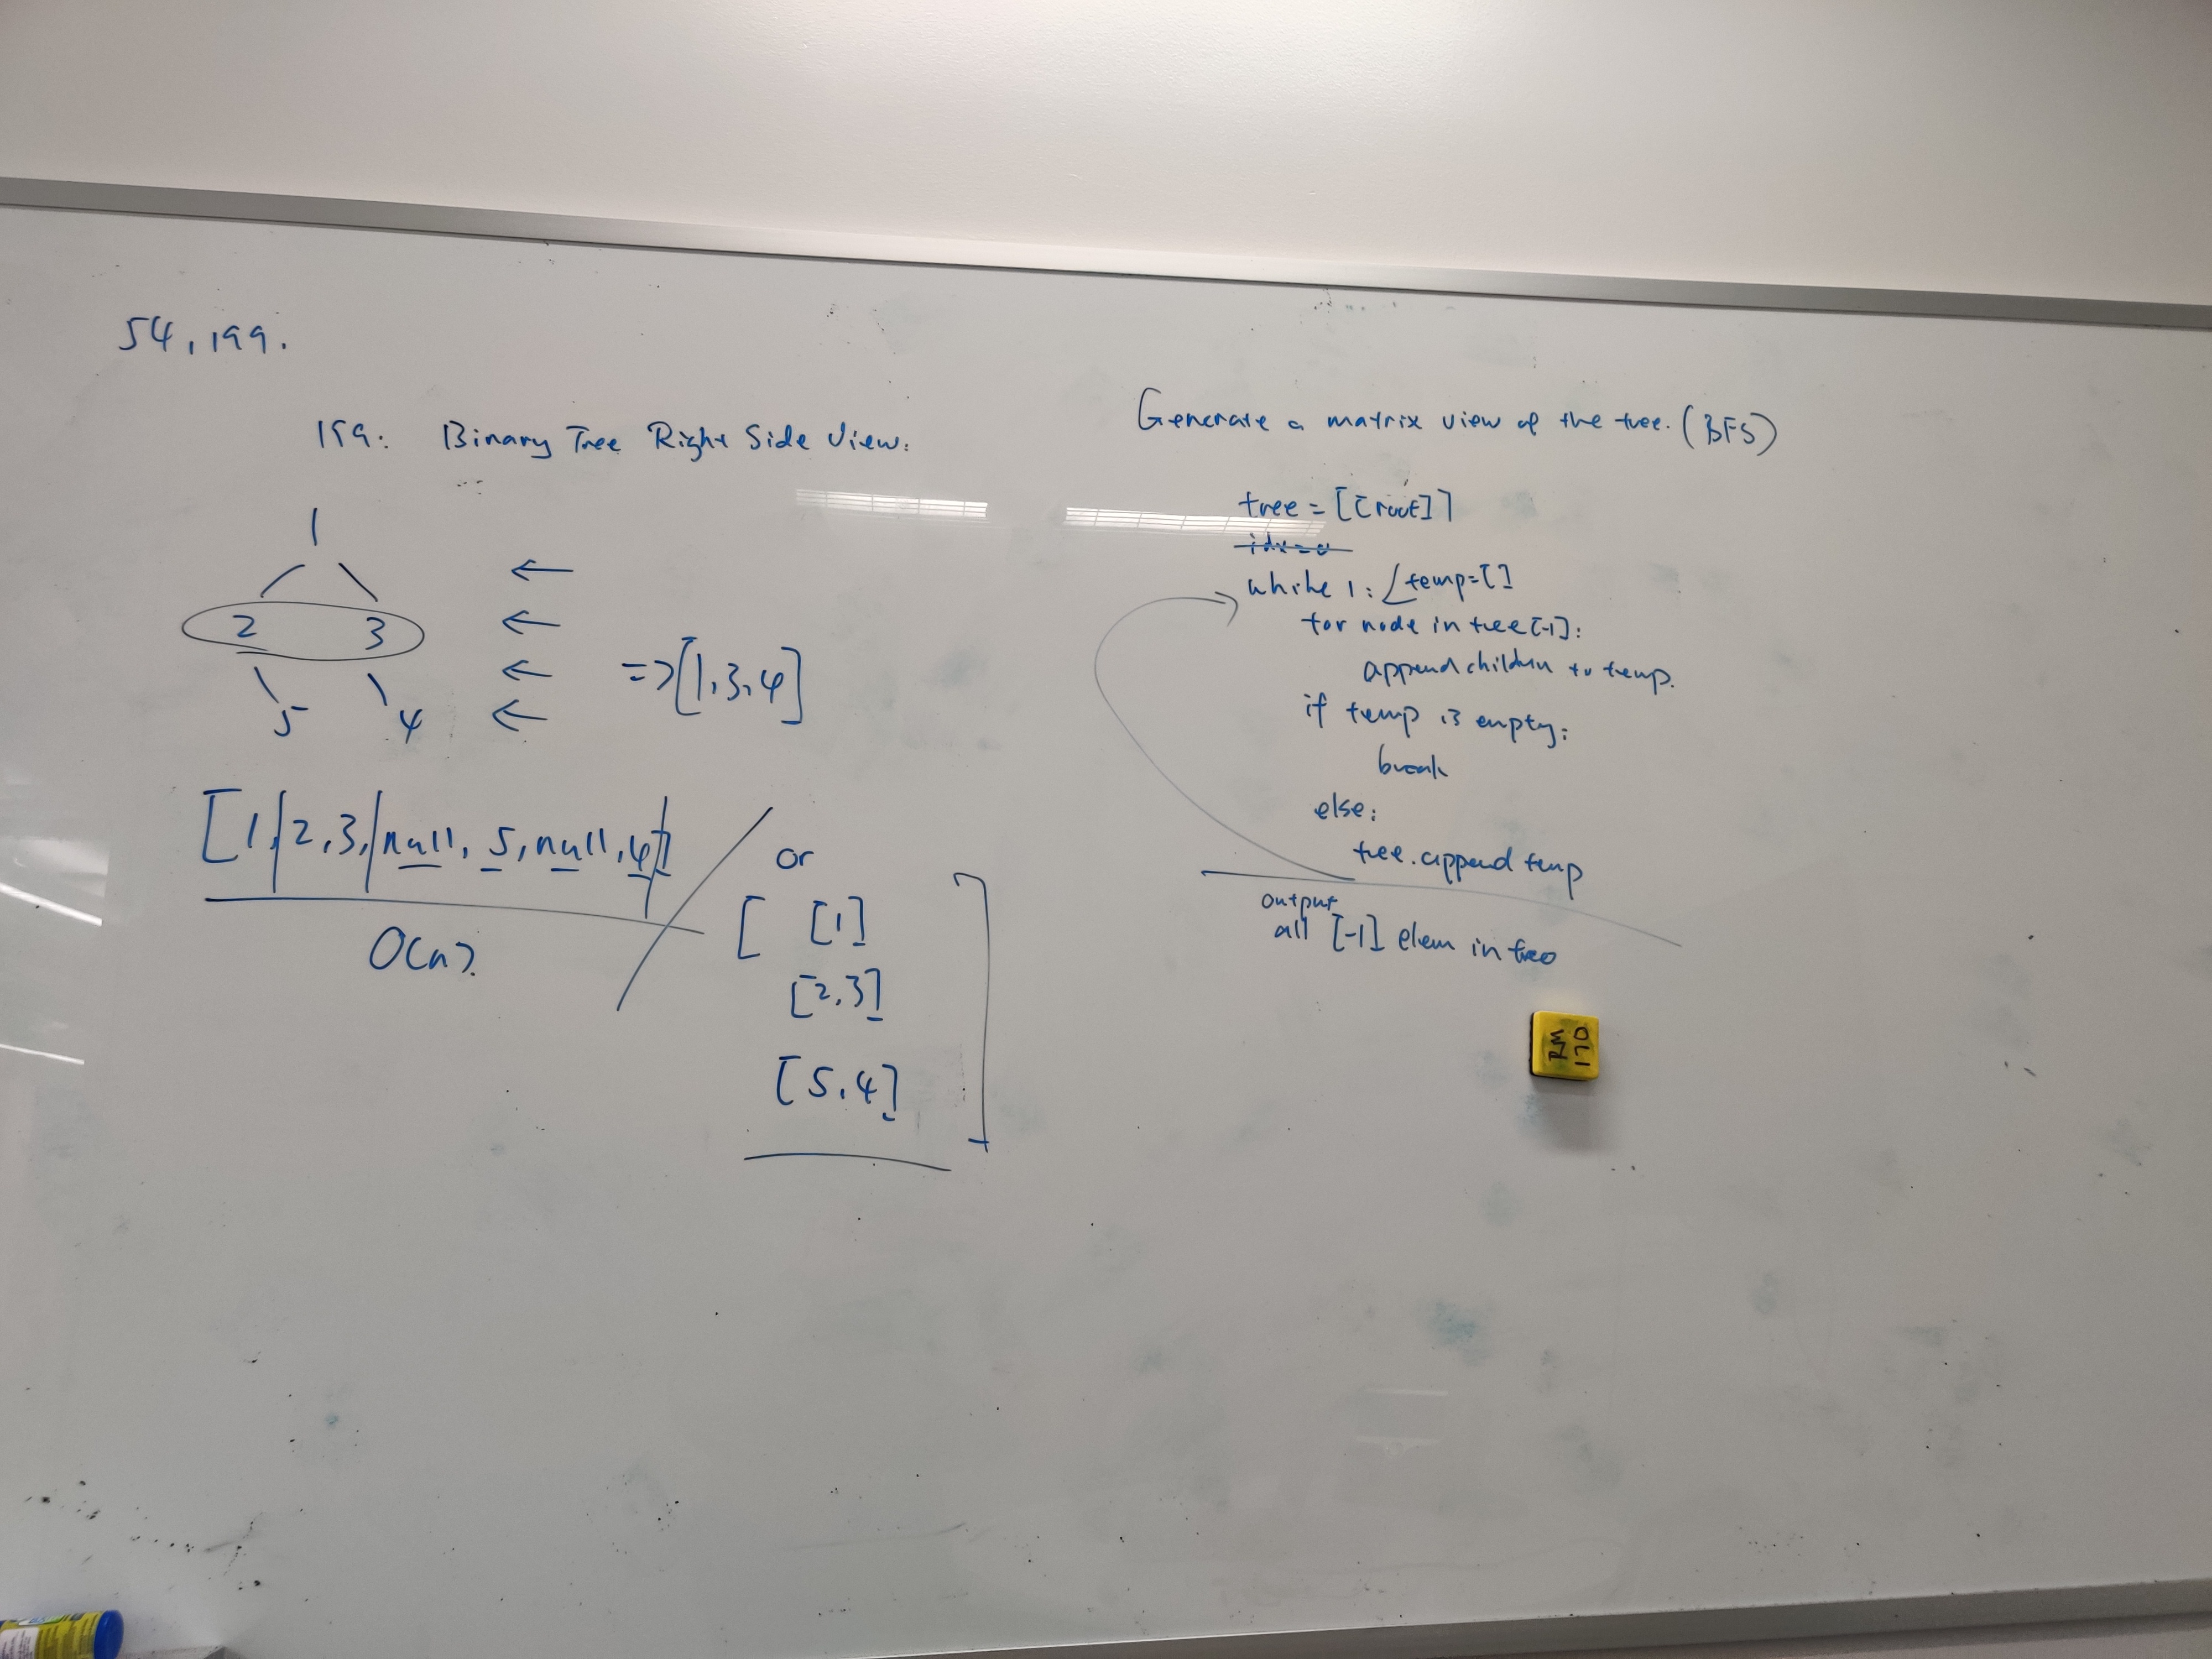 54, 199.
199: Binary Tree Right Side View:
1
2 3
5 4
=> [1, 3, 4]
[1, 2, 3, null, 5, null, 4]
O(n).
or
[ [1]
[2, 3]
[5, 4] ]
Generate a matrix view of the tree. (BFS)
tree = [[root]]
idx = 0
while 1: temp=[]
for node in tree[-1]:
append children to temp.
if temp is empty:
break
else:
tree.append temp
output
all [-1] elem in tree
RM
170